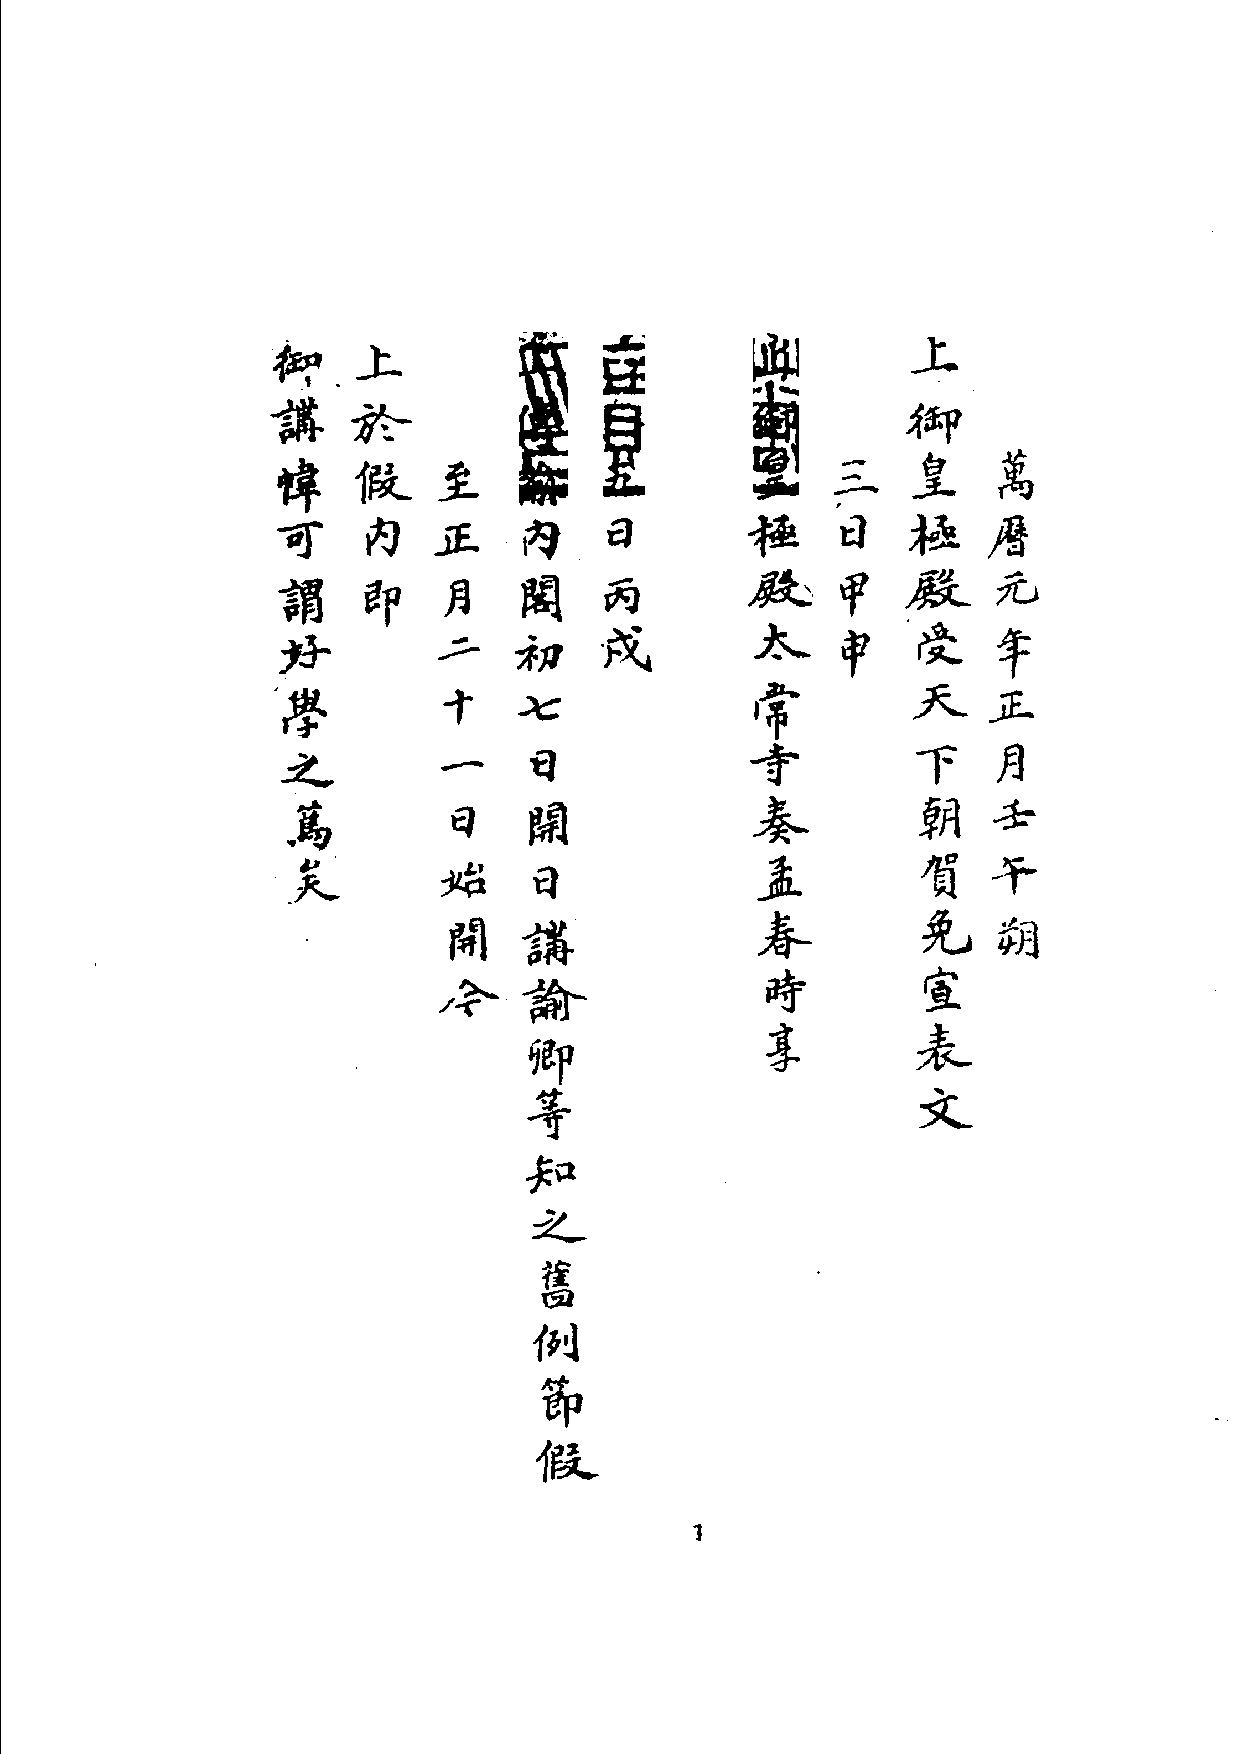 萬曆元年正月壬午朔
上御皇極殿受天下朝賀免宣表文
三日甲申
御皇極殿太常寺奏孟春時享
五日丙戌
諭内閣初七日開日講諭卿等知之舊例節假
至正月二十一日始開今
上於假内即
御講幃可謂好學之篤矣
1